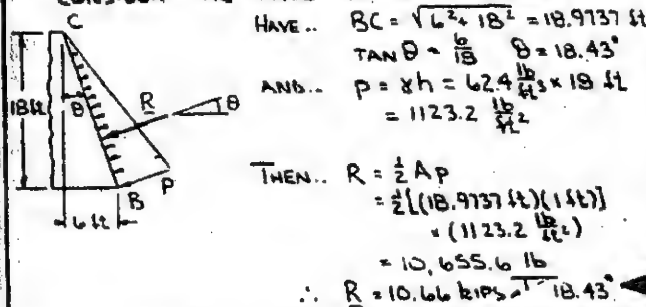 C
18 ft
θ
R
θ
P
B
6 ft
HAVE.. BC = √6²+ 18² = 18.9737 ft
TAN θ = 6/18 θ = 18.43°
AND.. p = γh = 62.4 lb/ft³ × 18 ft
= 1123.2 lb/ft²
THEN.. R = ½ Ap
= ½[(18.9737 ft)(1 ft)]
× (1123.2 lb/ft²)
= 10,655.6 lb
∴ R = 10.66 kips 18.43°